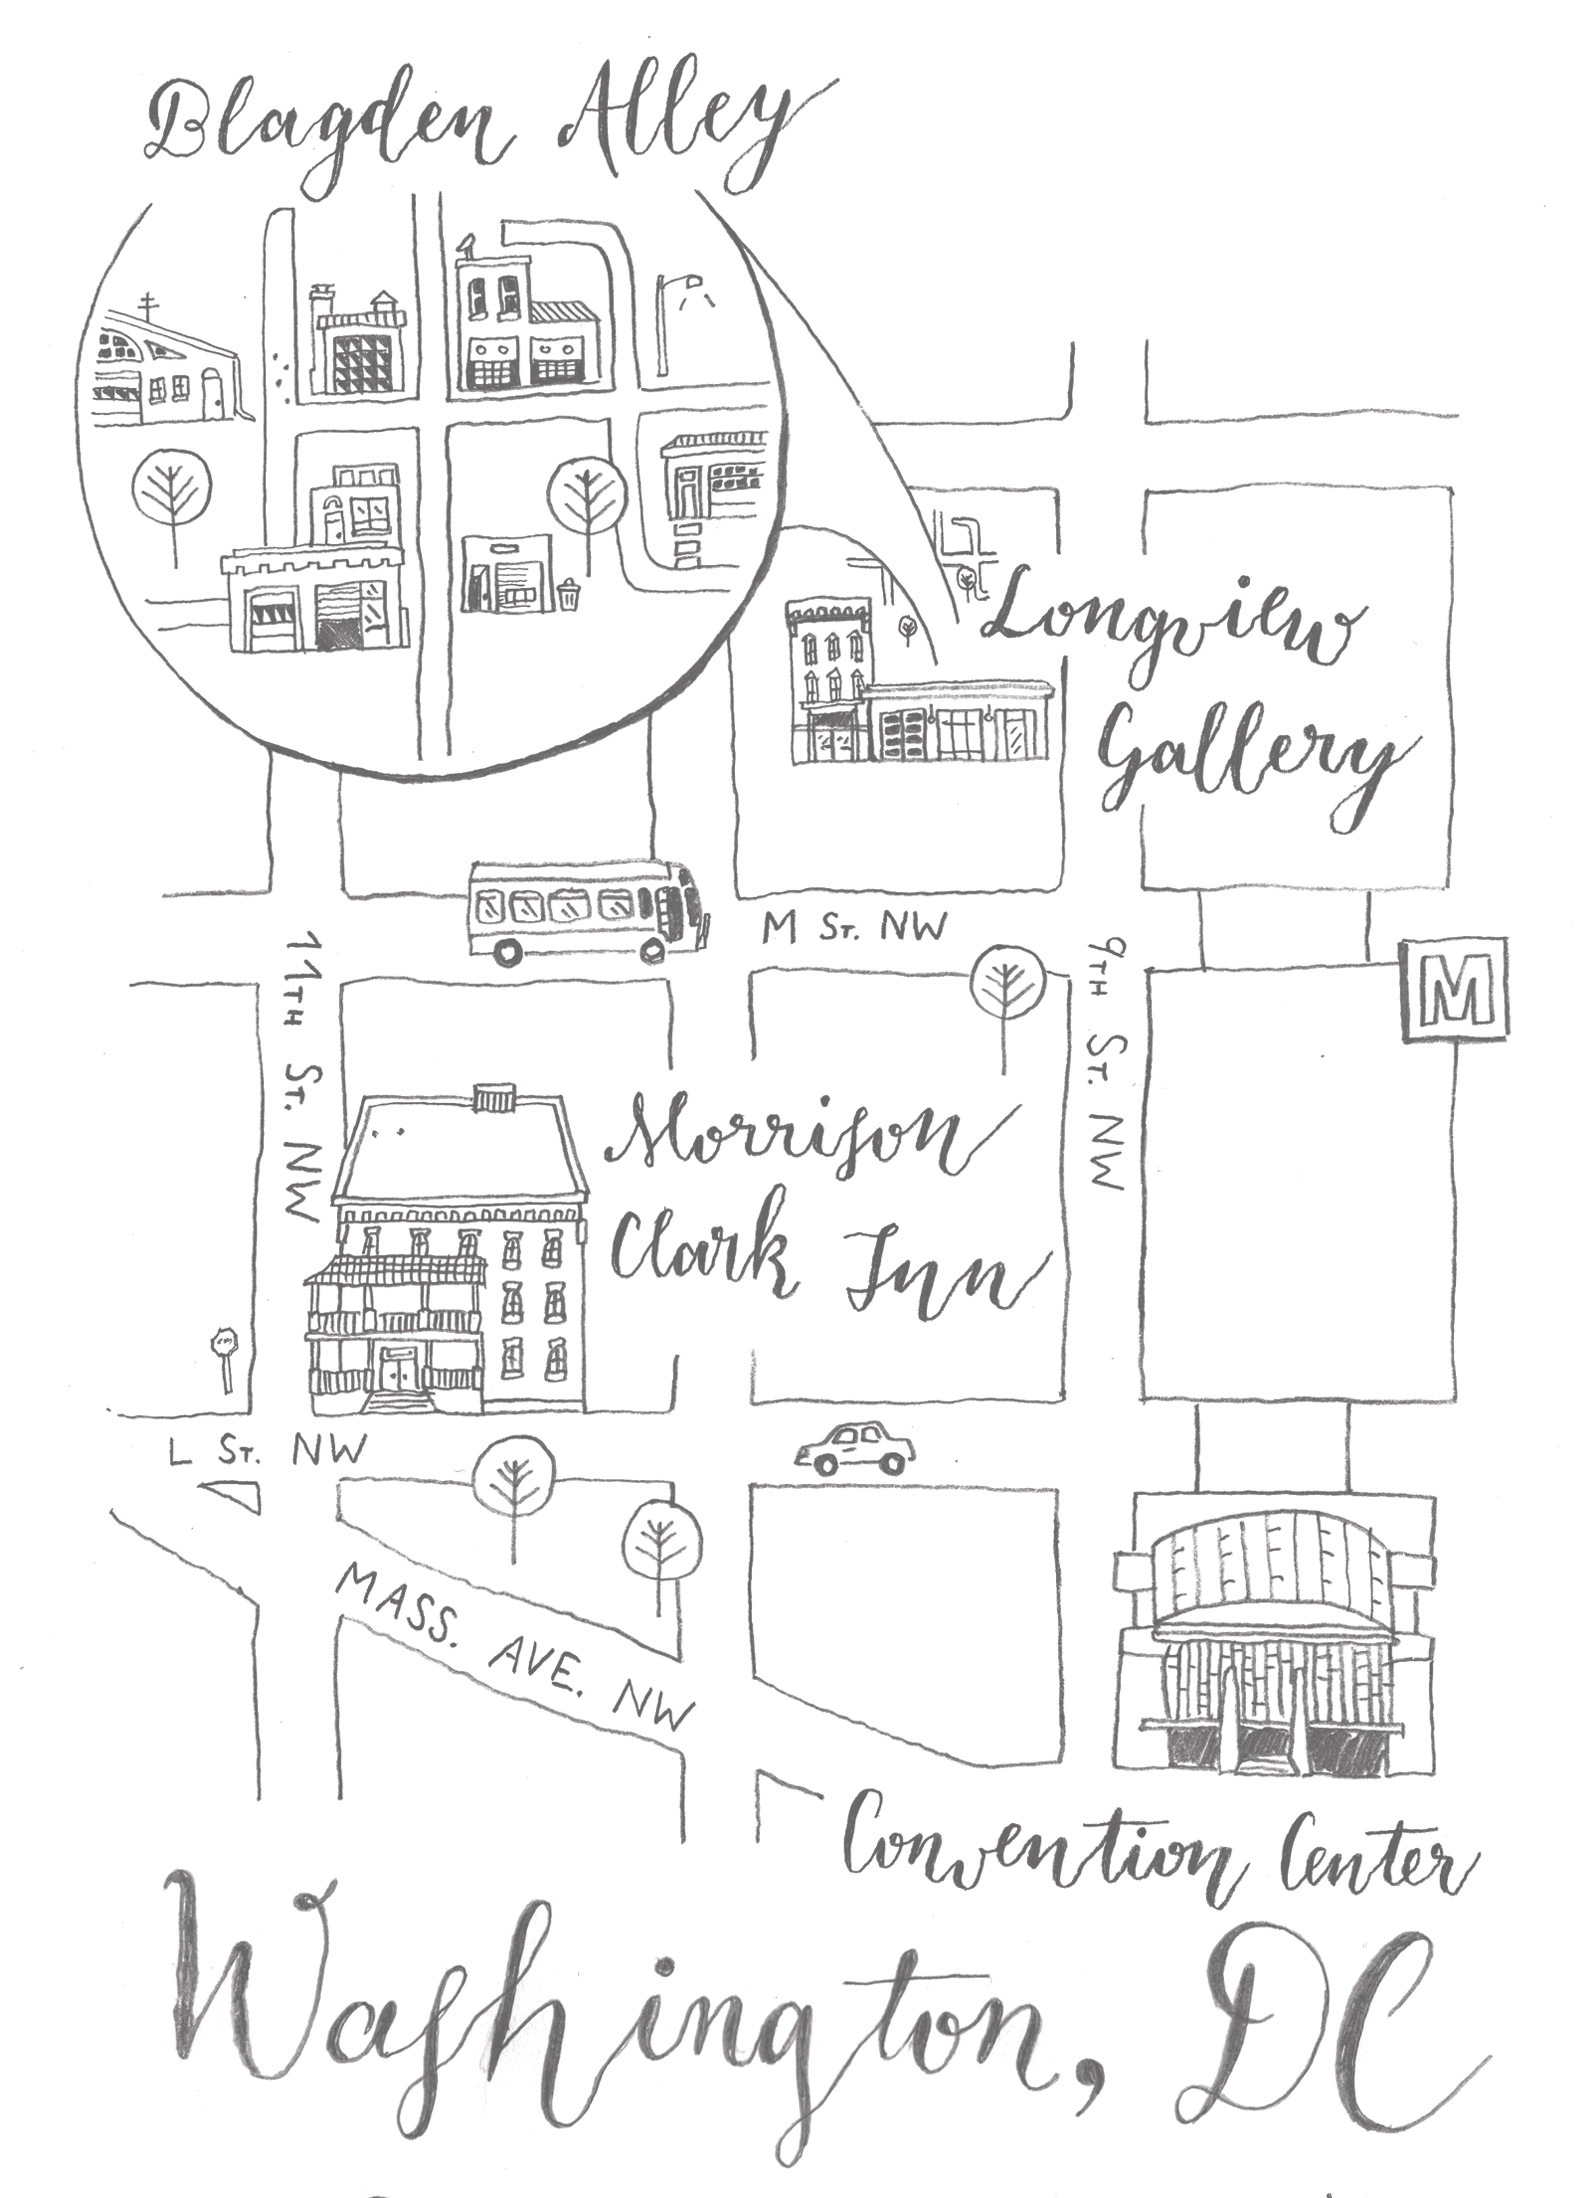 Blagden Alley
Longview
Gallery
M St. NW
11TH St. NW
9TH St. NW
M
Morrison
Clark Inn
L St. NW
MASS. AVE. NW
Convention Center
Washington, DC